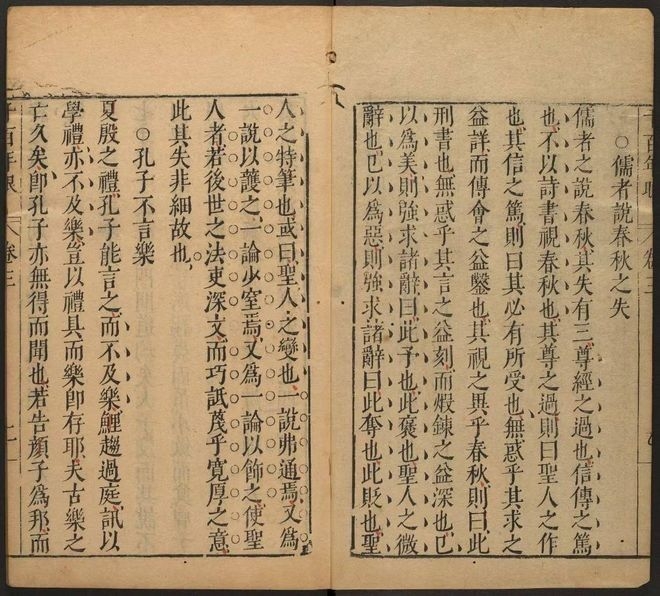 ○儒者說春秋之失
儒者之說春秋其失有三尊經之過也信傳之篤
也不以詩書視春秋也其尊之過則曰聖人之作
也其信之篤則曰其必有所受也無惑乎其求之
益詳而傳會之益鑿也其視之異乎春秋則曰此
刑書也無惑乎其言之益刻而煅鍊之益深也已
以爲美則強求諸辭曰此予也此褒也聖人之微
辭也已以爲惡則強求諸辭曰此奪也此貶也聖
人之特筆也或曰聖人之變也一說弗通焉又爲
一說以護之一論少窒焉又爲一論以飾之使聖
人者若後世之法吏深文而巧詆蔑乎寬厚之意
此其失非細故也
○孔子不言樂
夏殷之禮孔子能言之而不及樂鯉趨過庭訊以
學禮亦不及樂豈以禮具而樂卽存耶夫古樂之
亡久矣卽孔子亦無得而聞也若告顏子爲邦而
卷三